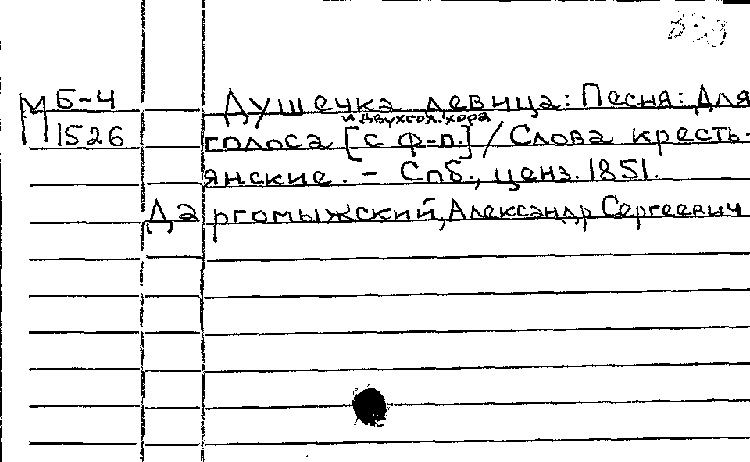 М Б-4
1526
Душечка девица: Песня: Для
и двухгол. хора
голоса [с ф-п.] / Слова кресть-
янские. - Спб., ценз. 1851.
Даргомыжский, Александр Сергеевич